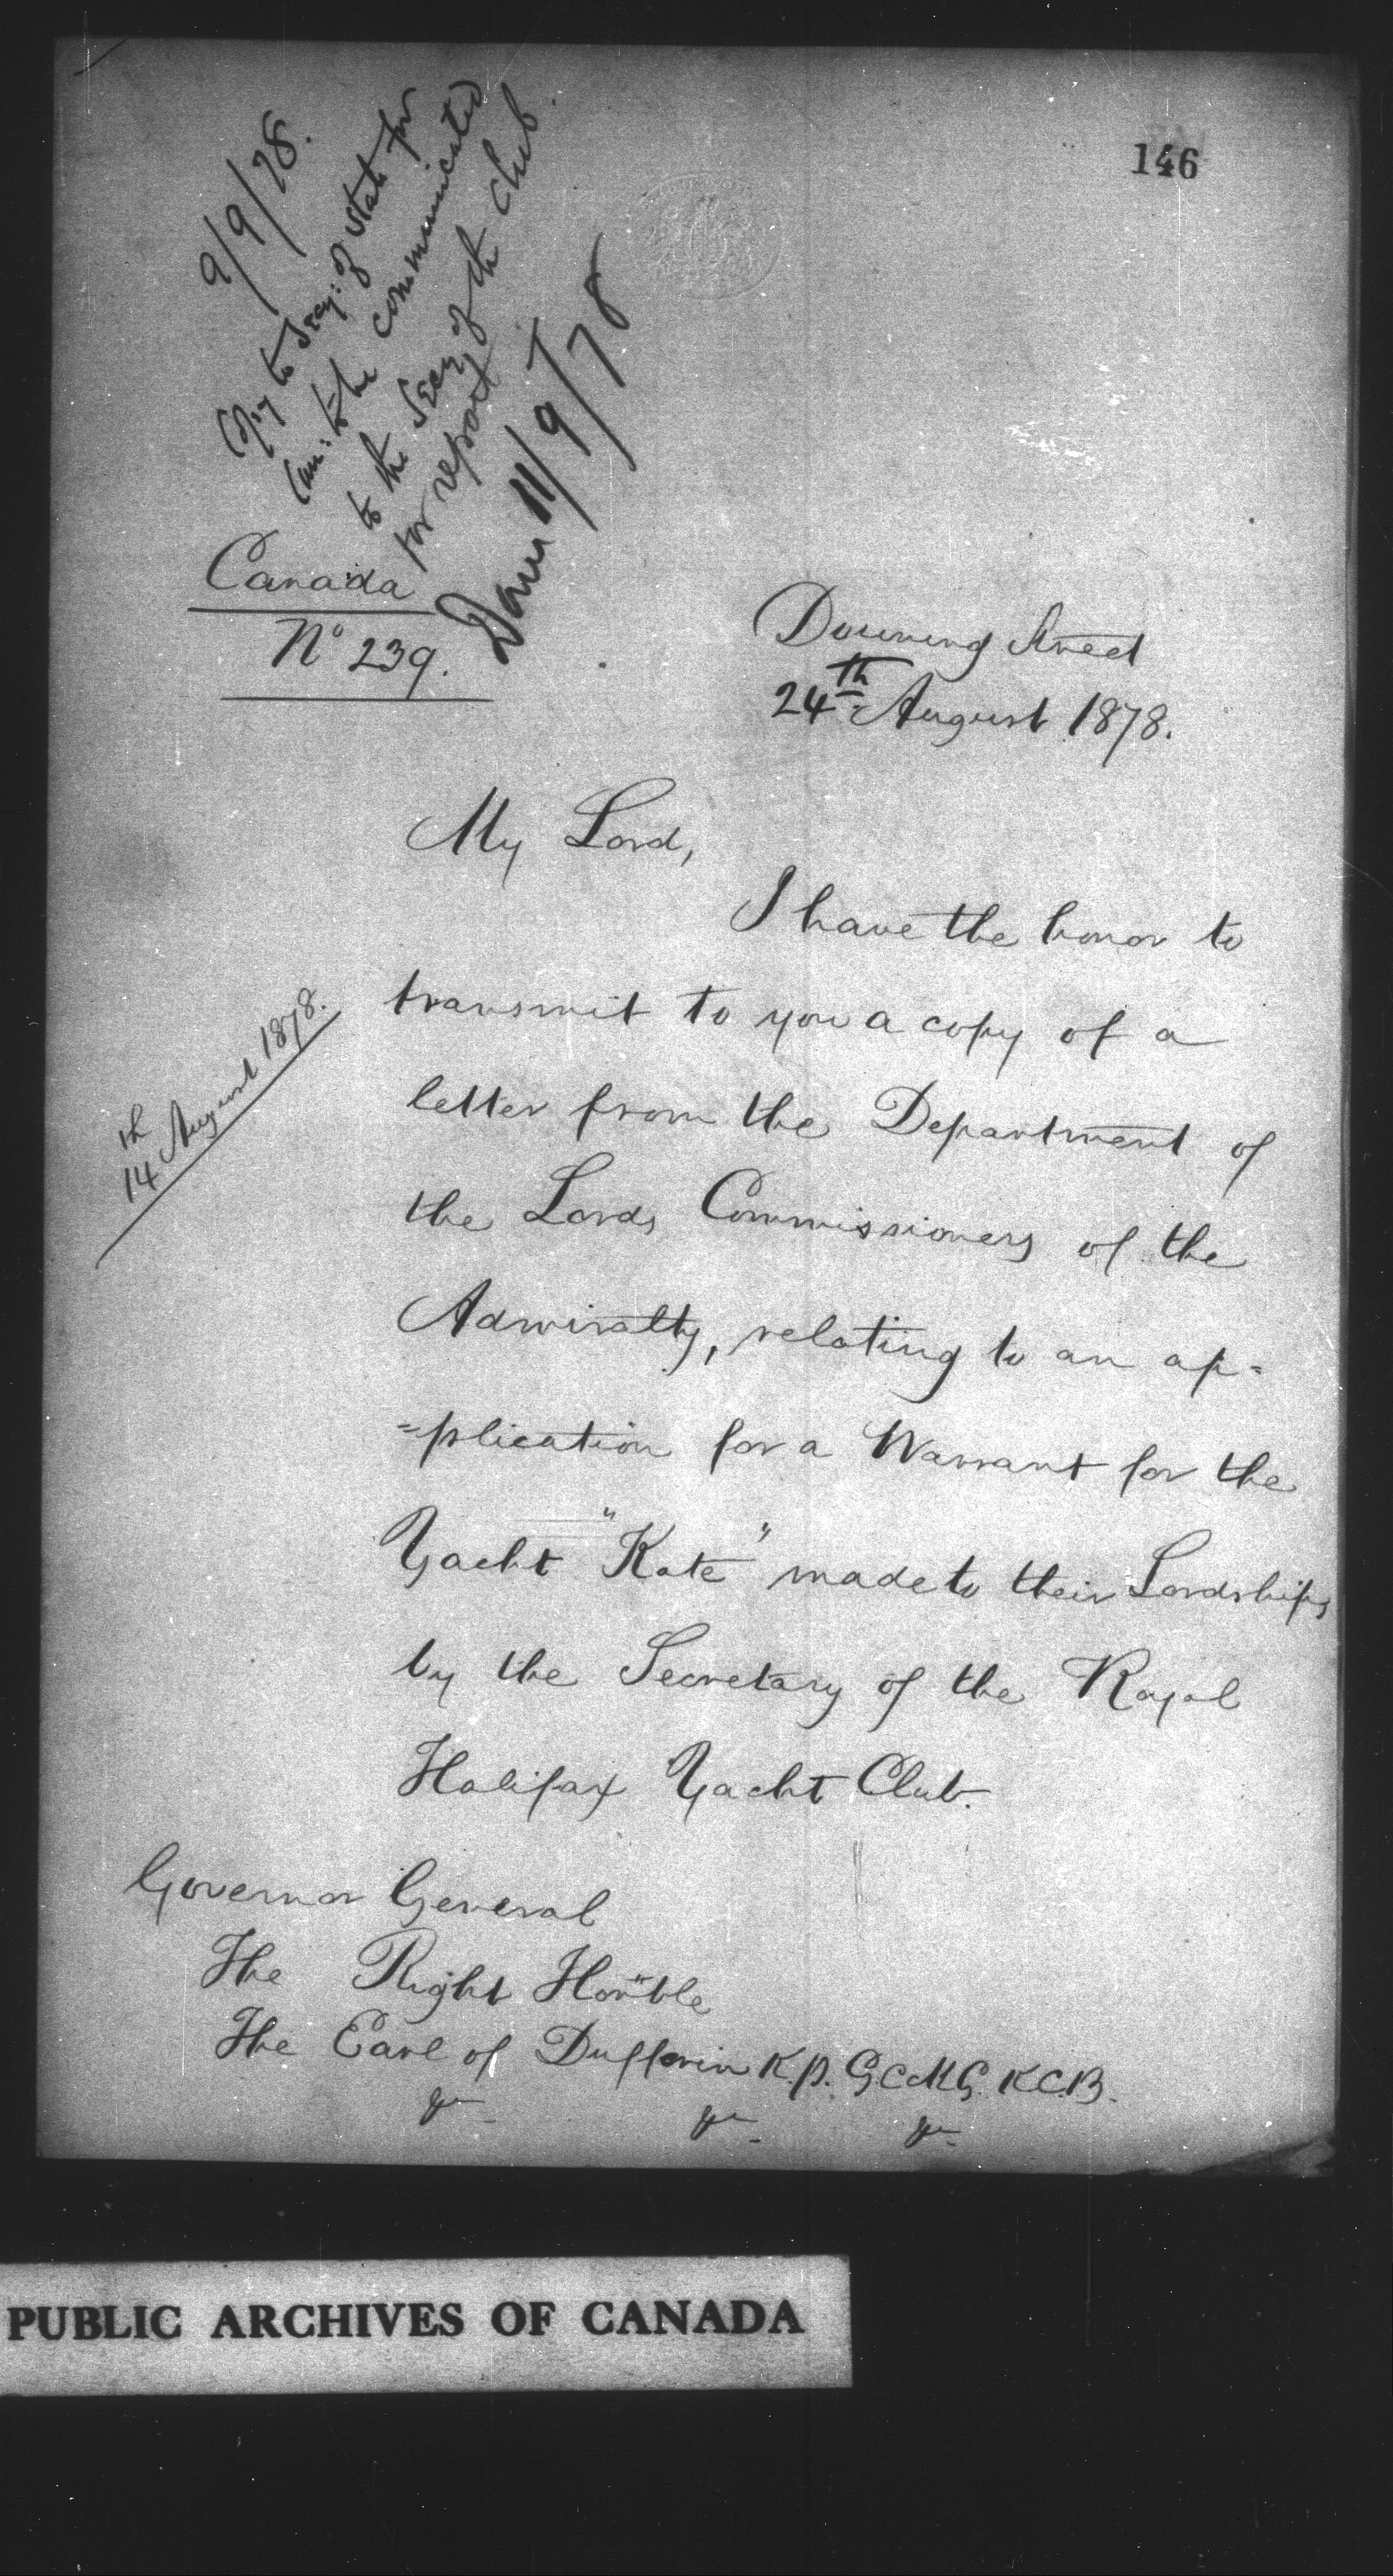 146
9/9/78.
Copy to Secy: of State for
Can: to be communicated
to the Secy of the Club.
for report
Done 11/9/78
Canada
No 239.
Downing Street
24th August 1878.
My Lord,
I have the honor to
transmit to you a copy of a
letter from the Department of
the Lords Commissioners of the
Admiralty, relating to an ap=
=plication for a Warrant for the
Yacht "Kate" made to their Lordships
by the Secretary of the Royal
Halifax Yacht Club.
14th August 1878.
Governor General
The Right Honble
The Earl of Dufferin K.P. G.C.M.G. K.C.B.
&c &c &c
PUBLIC ARCHIVES OF CANADA